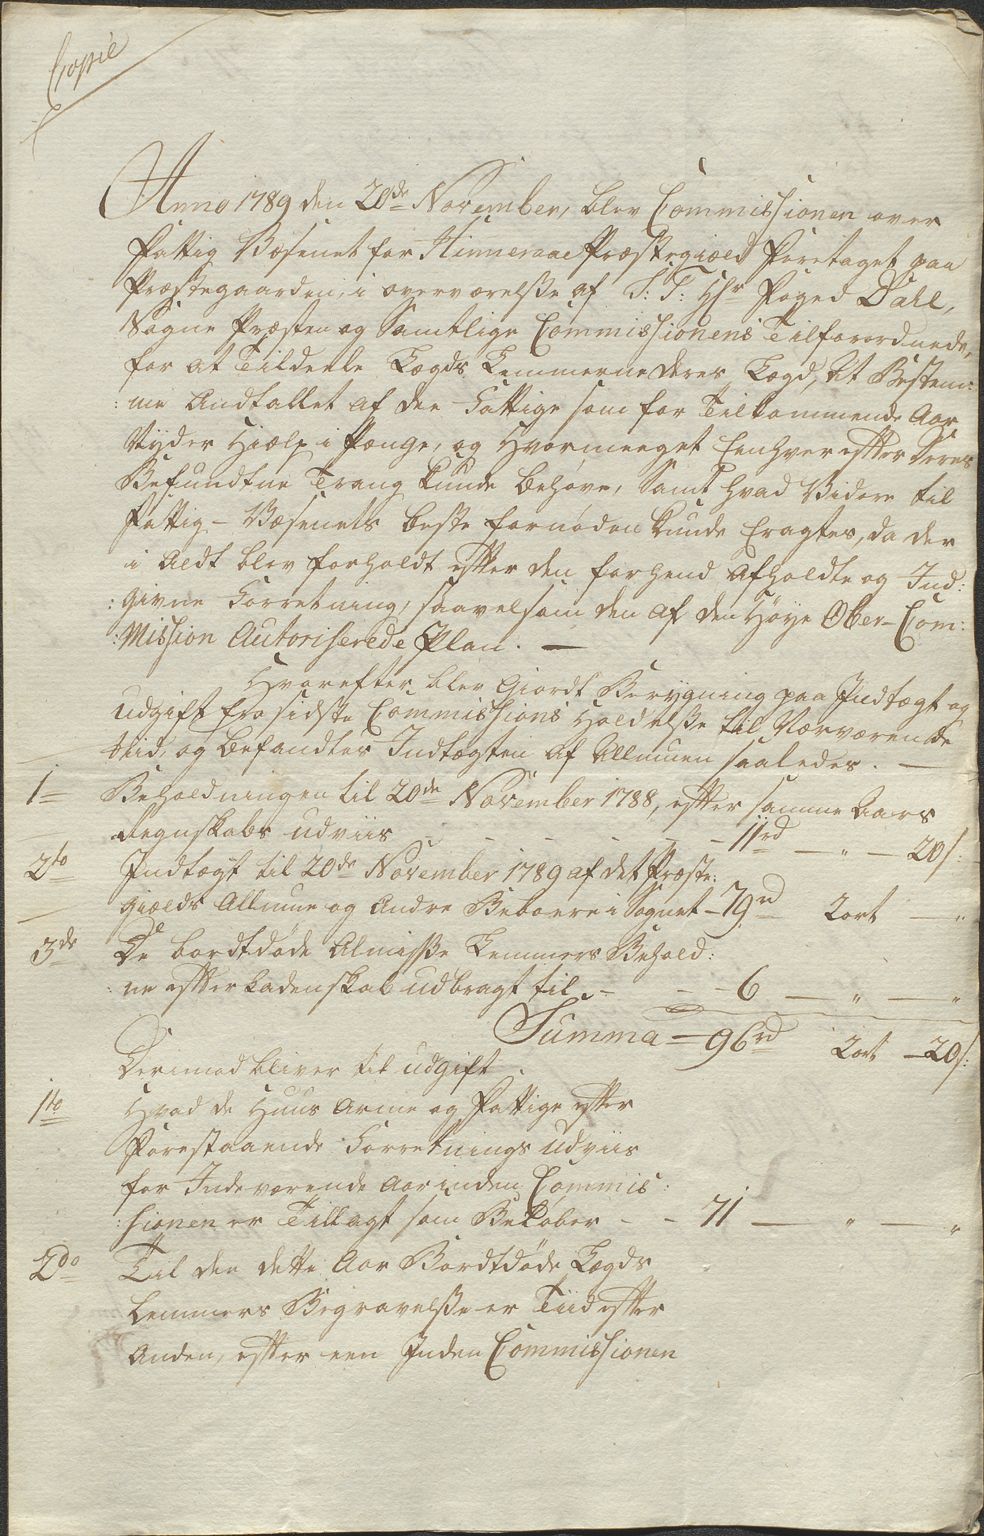 Copie
Anno 1789 den 20de November, blev Commissionen over
Fattig Væsenet for Hinneraae Præstegield foretaget paa
Præstegaarden, i overværelse af S: T: Hr Foged Dahl,
Sogne Præsten og Samtlige Commissionens Tilforordnede,
for at Tildeele Lægds Lemmerne deres Lægd, at Bestem:
:me Andtallet af dee Fattige som for Tilkommende Aar
Nyder Hielp i Penge, og Hvormeeget Eenhver efter Deres
Befundene Trang kunde behøve, samt hvad Videre til
Fattig-Væsenets beste fornøden kunde Eragtes, da der
i Aldt blev forholdt efter den forhend Afholdte og Ind:
:givne Forretning, saavelsom den af den Høye Ober-Com:
:Mission Autoriserede Plan. —
Hvorefter blev Giordt Berægning paa Indtægt og
Udgift fra sidste Commissions Holdelse til Nærværende
tid, og befandtes Indtægten af Allmuen saaledes. —
1= Beholdningen til 20de November 1788, efter samme Aars
Regnskabs udviis - - - - - 11rd — „ — 20s:
2do Indtægt til 20de November 1789 af det Præste:
gields Allmue og Andre Beboere i Sognet - 79rd 2ort — „
3de De bortdøde Almisse Lemmers Behold:
:ne efter Ladenskab udbragt til - - - 6 — „ — „
Summa - 96rd 2ort - 20s:
Derimod bliver til udgift
1to Hvad de Huus Arme og Fattige efter
Forestaaende Forretnings udviis
for Indeværende Aar inden Commis:
:sionen er Tillagt som Beløber - - 71 — „ — „
2do Til den dette Aar Bortdøde Lægds
Lemmers Begravelse er Tiid efter
Anden, efter een Inden Commissionen